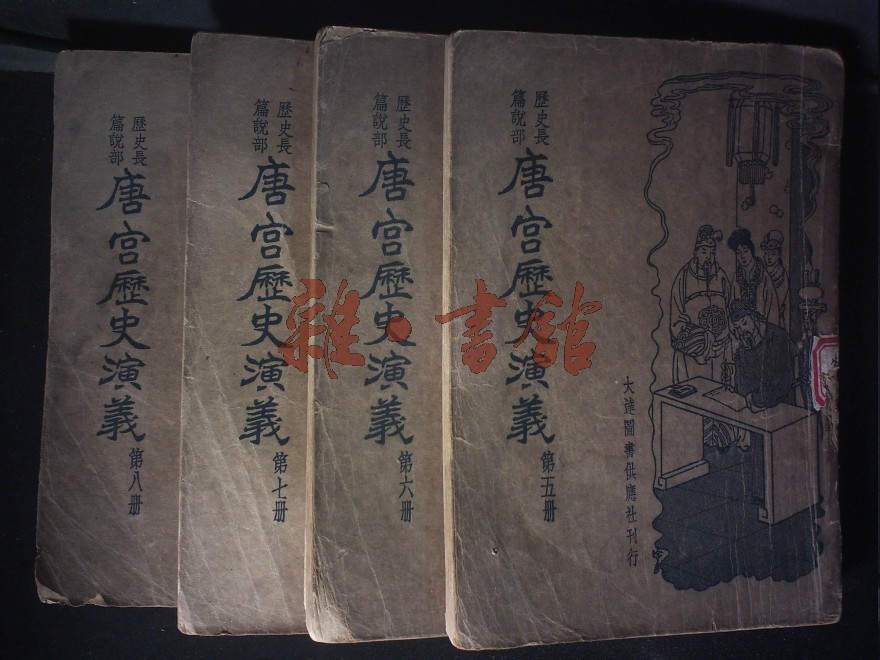 歷史長
篇說部
唐宮歷史演義
第五册
大達圖書供應社刊行
歷史長
篇說部
唐宮歷史演義
第六册
歷史長
篇說部
唐宮歷史演義
第七册
歷史長
篇說部
唐宮歷史演義
第八册
雜·書館